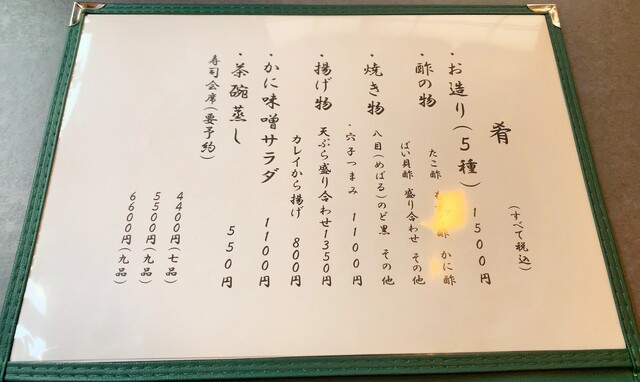 肴
(すべて税込)
・お造り(5種) 1500円
・酢の物 たこ酢 酢 かに酢
ばい貝酢 盛り合わせ その他
・焼き物 八目(めばる)のど黒 その他
・穴子つまみ 1100円
・揚げ物 天ぷら盛り合わせ1350円
カレイから揚げ 800円
・かに味噌サラダ 1100円
・茶碗蒸し 550円
寿司会席(要予約)
4400円(七品)
5500円(九品)
6600円(九品)